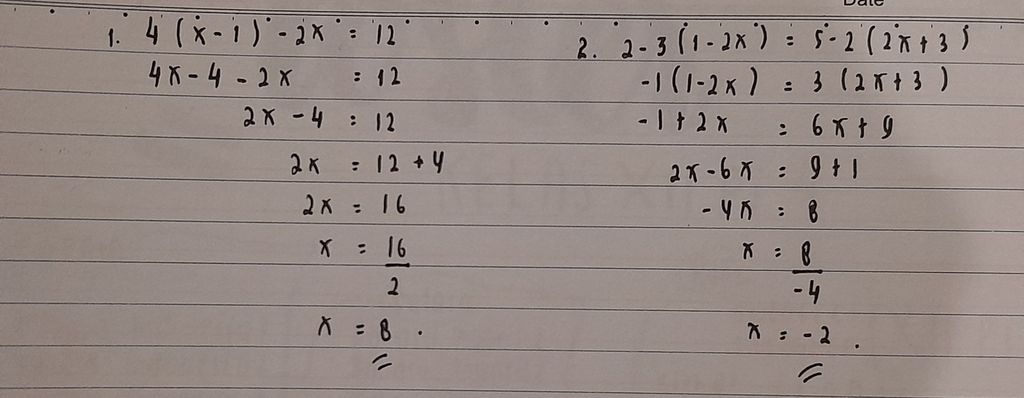 Date
1. 4 (x - 1) - 2x = 12
4x - 4 - 2x = 12
2x - 4 = 12
2x = 12 + 4
2x = 16
x = 16
2
x = 8 .
2. 2 - 3 (1 - 2x) = 5 - 2 (2x + 3)
-1 (1 - 2x) = 3 (2x + 3)
-1 + 2x = 6x + 9
2x - 6x = 9 + 1
-4x = 8
x = 8
-4
x = -2 .